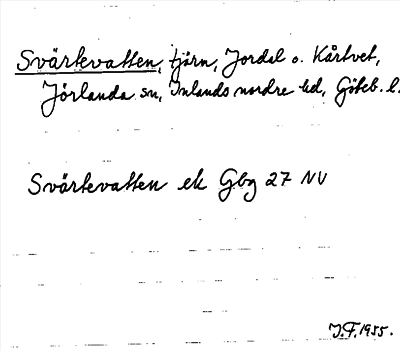 Svärtevatten, tjörn, Jordal o. Kårtvet,
Jörlanda sn, Inlands nordre hd, Göteb. l.
Svärtevatten ek Gbg 27 NV
J.F. 1955.